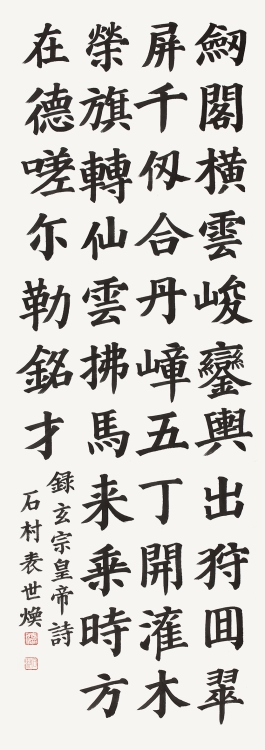 劒閣橫雲峻鑾輿出狩囬翠
屏千仭合丹嶂五丁開灌木
縈旗轉仙雲拂馬来乗時方
在德嗟尓勒銘才
録玄宗皇帝詩
石村袁世煥